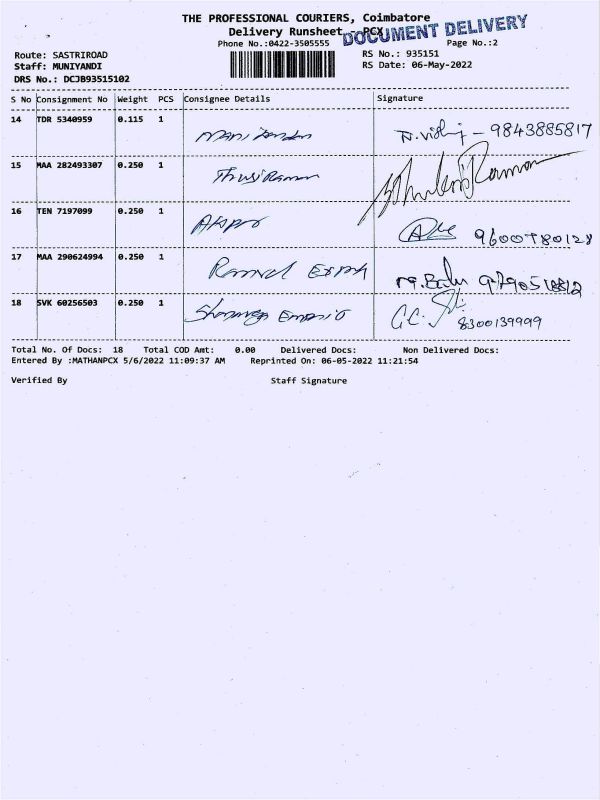 THE PROFESSIONAL COURIERS, Coimbatore
Delivery Runsheet - PCX
DOCUMENT DELIVERY
Phone No.:0422-3505555 Page No.:2
Route: SASTRIROAD RS No.: 935151
Staff: MUNIYANDI RS Date: 06-May-2022
DRS No.: DCJB93515102
S No Consignment No Weight PCS Consignee Details Signature
14 TDR 5340959 0.115 1 - 9843885817
15 MAA 282493307 0.250 1
16 TEN 7197099 0.250 1 9600780128
17 MAA 290624994 0.250 1
18 SVK 60256503 0.250 1 8300139999
Total No. Of Docs: 18 Total COD Amt: 0.00 Delivered Docs: Non Delivered Docs:
Entered By :MATHANPCX 5/6/2022 11:09:37 AM Reprinted On: 06-05-2022 11:21:54
Verified By Staff Signature